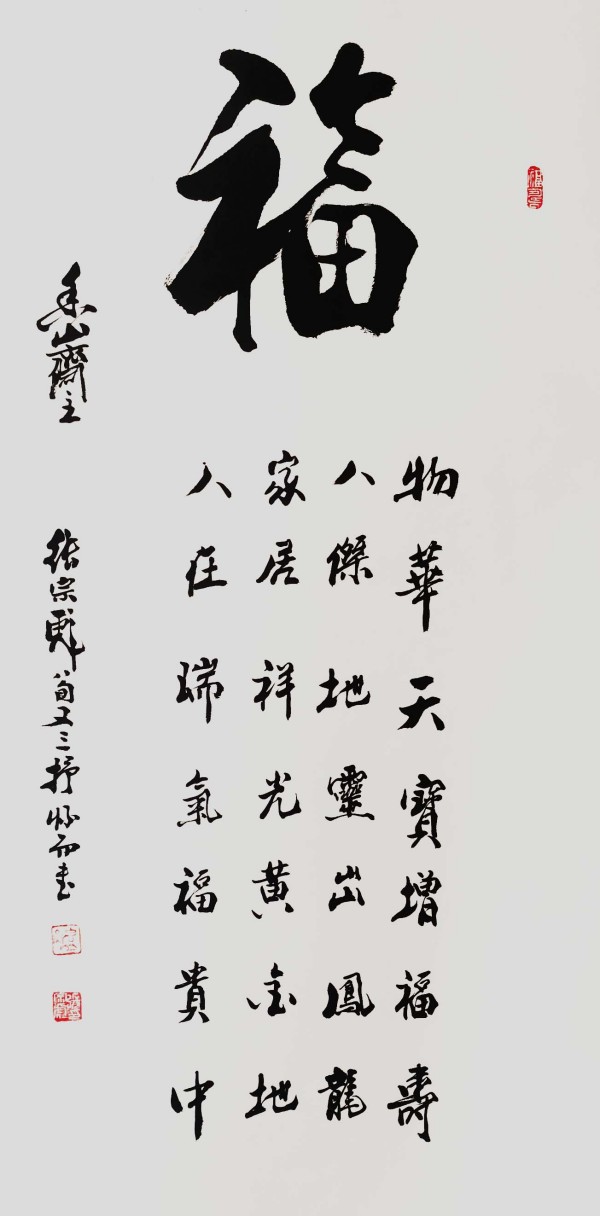 福
物華天寶增福壽
人傑地靈出鳳龍
家居祥光黃金地
人在瑞氣福貴中
山齋主
張宗彪八旬又三抒怀而書